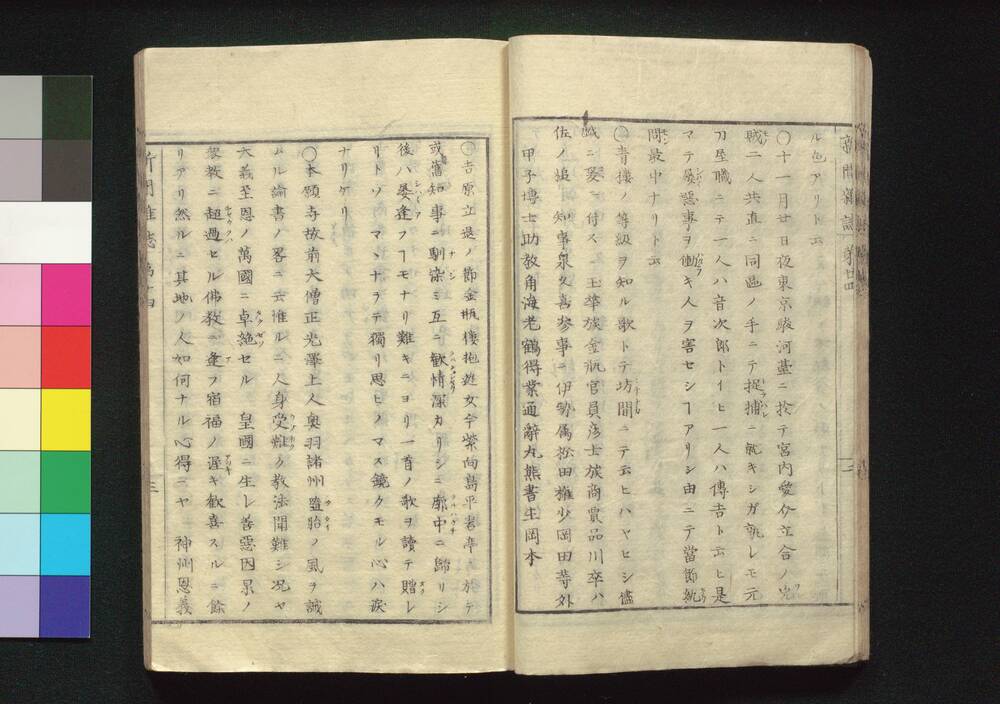 ル色アリト云
〇十一月廿日夜東京駿河臺ニ於テ宮内愛作立合ノ兇
賊二人共直ニ同邑ノ手ニテ捉捕ニ就キシガ孰レモ元
刀屋職ニテ一人ハ音次郎トイヒ一人ハ傳吉ト云ヒ是
マテ屡惡事ヲ働キ人ヲ害セシヿアリシ由ニテ當節糺
問最中ナリト云
〇青樓ノ等級ヲ知ル歌トテ坊間ニテ云ヒハヤヒシ儘
ニ付ス 玉華族金瓶官員彦士族商賈品川卒ハ
佐ノ追 知事泉久喜參事ニ伊勢属松田権少岡田等外
甲子博士助教角海老鶴得業通辭丸熊書生岡本
新聞雜誌 第廿四
三
〇吉原立退ノ節金瓶樓抱遊女今紫向島平岩亭ニ於テ
或舊知事ニ馴染ミ互ニ歡情深カリシニ廓中ニ歸リシ
後ハ屡逢フヿモナリ難キニヨリ一首ノ歌ヲ讀テ贈レ
リトソ マヽナラテ獨リ思ヒノマス鏡クモル心ハ涙
ナリケリ
〇本願寺故前大僧正光澤上人奥羽諸州墮胎ノ風ヲ誡
ムル諭書ノ畧ニ云惟ルニ人身受難ク教法聞難シ况ヤ
大義至恩ノ萬國ニ卓絶セル 皇國ニ生レ善惡因果ノ
衆教ニ超過セル佛教ニ逢フ宿福ノ渥キ歡喜スルニ餘
リアリ然ルニ其地ノ人如何ナル心得ニヤ 神州恩義